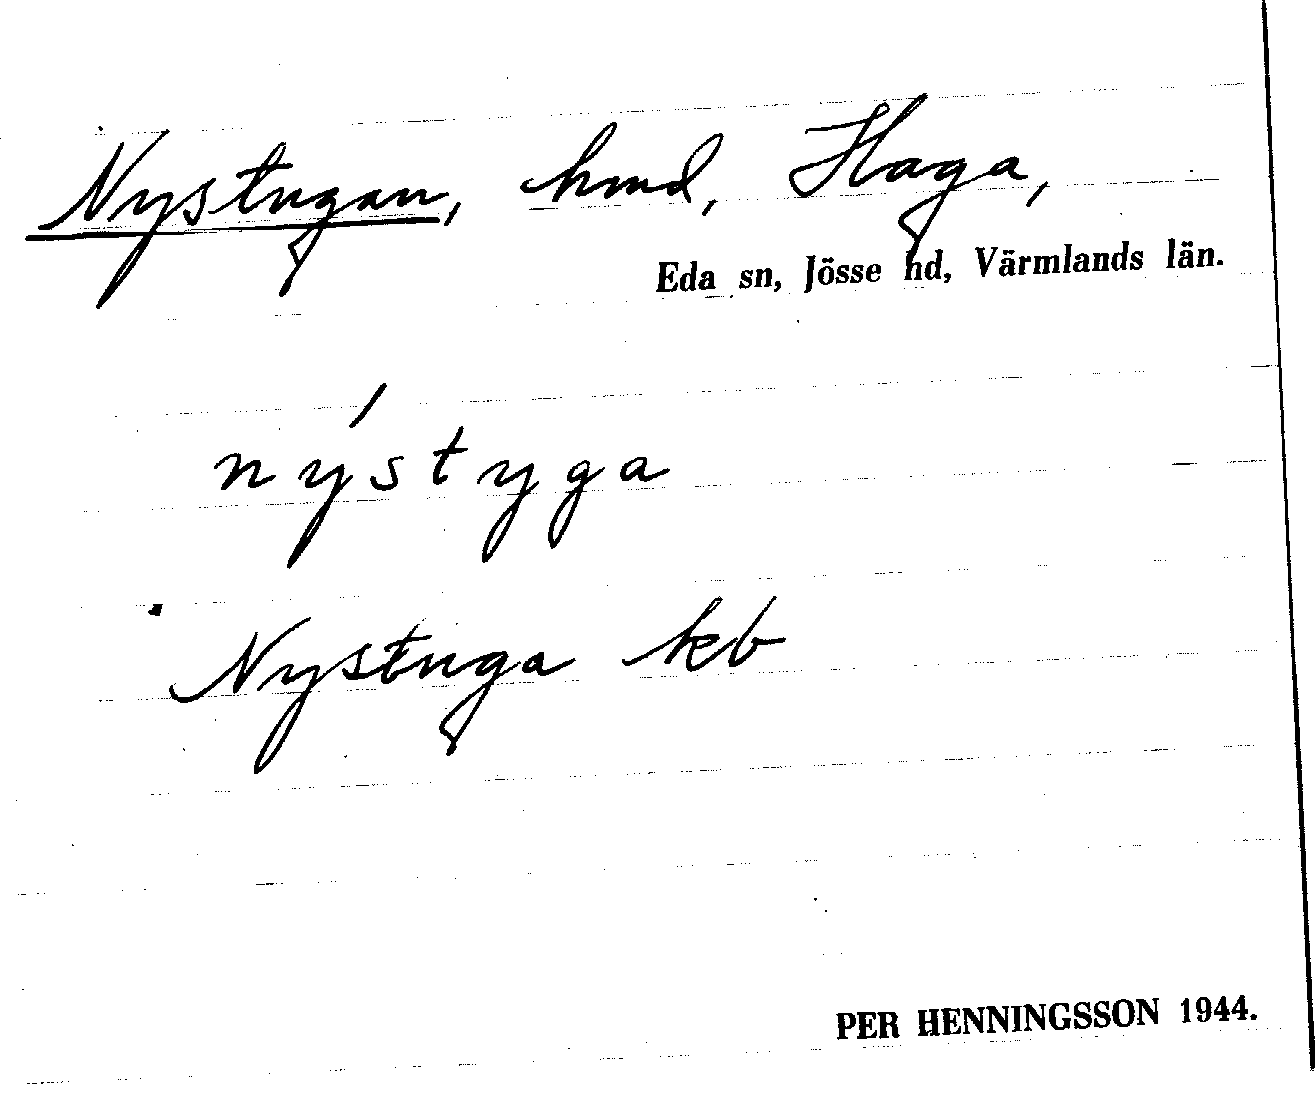 Nystugan, hmd, Haga,
Eda sn, Jösse hd, Värmlands län.
nýstyga
Nystuga kb
PER HENNINGSSON 1944.